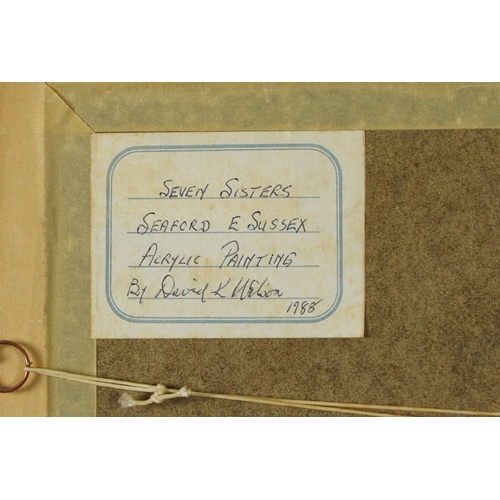 SEVEN SISTERS
SEAFORD E SUSSEX
ACRYLIC PAINTING
By David K
1988